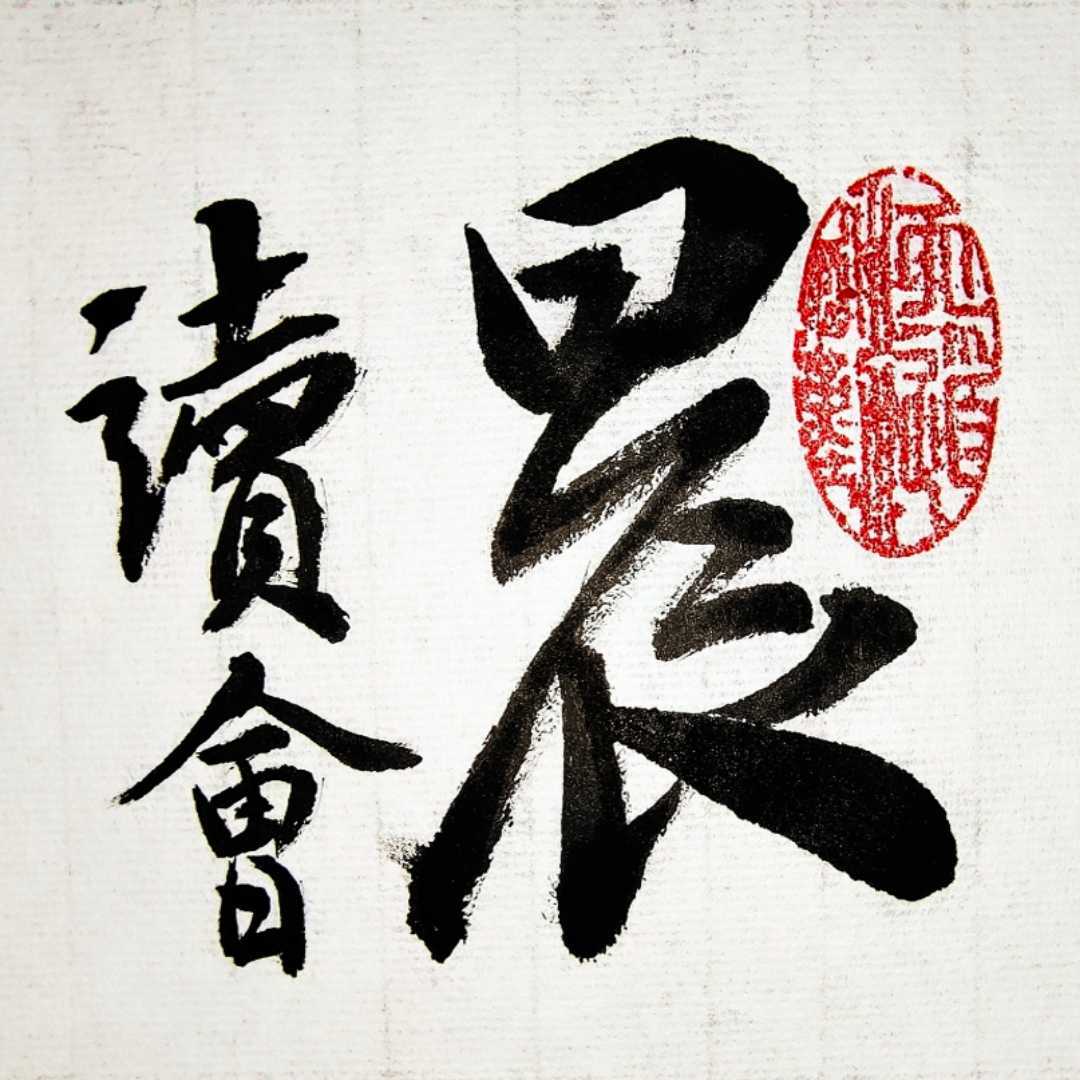 晨
讀會